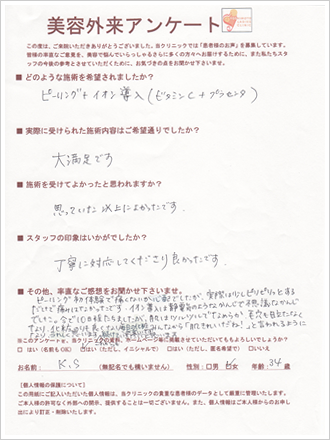 美容外来アンケート
この度は、ご来院いただきありがとうございました。当クリニックでは「患者様のお声」を募集しています。
皆様の率直なご意見を、美容で悩んでいらっしゃるさらに多くの方々へお届けするために、また私たちスタ
ッフの今後の参考とさせていただくために、お気づきの点をお聞かせ下さいませ。
■ どのような施術を希望されましたか?
ピーリング+イオン導入(ビタミンC+プラセンタ)
■ 実際に受けられた施術内容はご希望通りでしたか?
大満足です
■ 施術を受けてよかったと思われますか?
思っていた以上によかったです。
■ スタッフの印象はいかがでしたか?
丁寧に対応してくださり良かったです。
■ その他、率直なご感想をお聞かせ下さいませ。
ピーリング初体験で痛くないか心配でしたが、実際は少しピリピリッとする
だけで痛みはなかったです。イオン導入は静電気のようなかんじで不思議なかんじ
でした。今で10日経ちましたが、肌はツルツルしてなめらか、毛穴も目立たなく
なり、化粧のりも良くなり
みんなから「肌きれいだね!」と言われるように
※このアンケートを、当クリニックの
ホームページ等に掲載させていただいてもよろしいでしょうか?
□ はい(名前もOK) ☑ はい(ただし、イニシャルで) □ はい(ただし、匿名希望で) □いいえ
お名前: K.S (無記名でも構いません) 性別:□男 ☑女 年齢:34歳
【個人情報の保護について】
この用紙にご記入いただいた個人情報は、当クリニックの貴重な患者様のデータとして厳重に管理いたします。
ご本人様の許可なく外部への開示、提供することは一切ございません。また、個人情報はご本人様からのお申し
出により訂正・削除いたします。